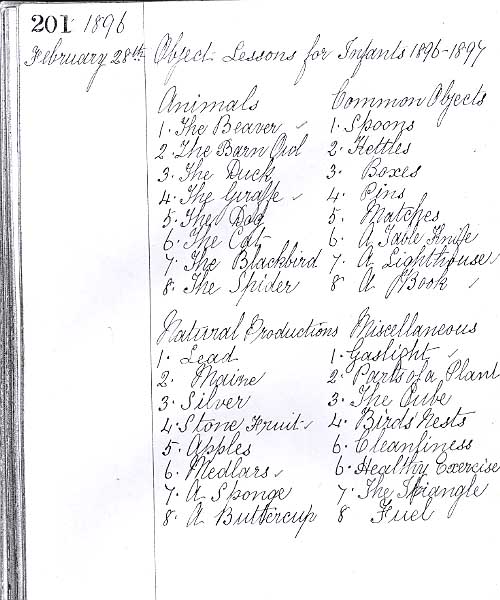 201 1896
February 28th Object Lessons for Infants 1896-1897
Animals
1. The Beaver
2. The Barn Owl
3. The Duck
4. The Giraffe
5. The Dog
6. The Cat
7. The Blackbird
8. The Spider
Common Objects
1. Spoons
2. Kettles
3. Boxes
4. Pins
5. Matches
6. A Table Knife
7. A Lighthouse
8 A Book
Natural Productions
1. Lead
2. Maine
3. Silver
4. Stone Fruit
5. Apples
6. Medlars
7. A Sponge
8. A Buttercup
Miscellaneous
1. Gaslight
2. Parts of a Plant
3. The Cube
4. Birds' Nests
6. Cleanliness
6. Healthy Exercise
7. The Triangle
8 Fuel